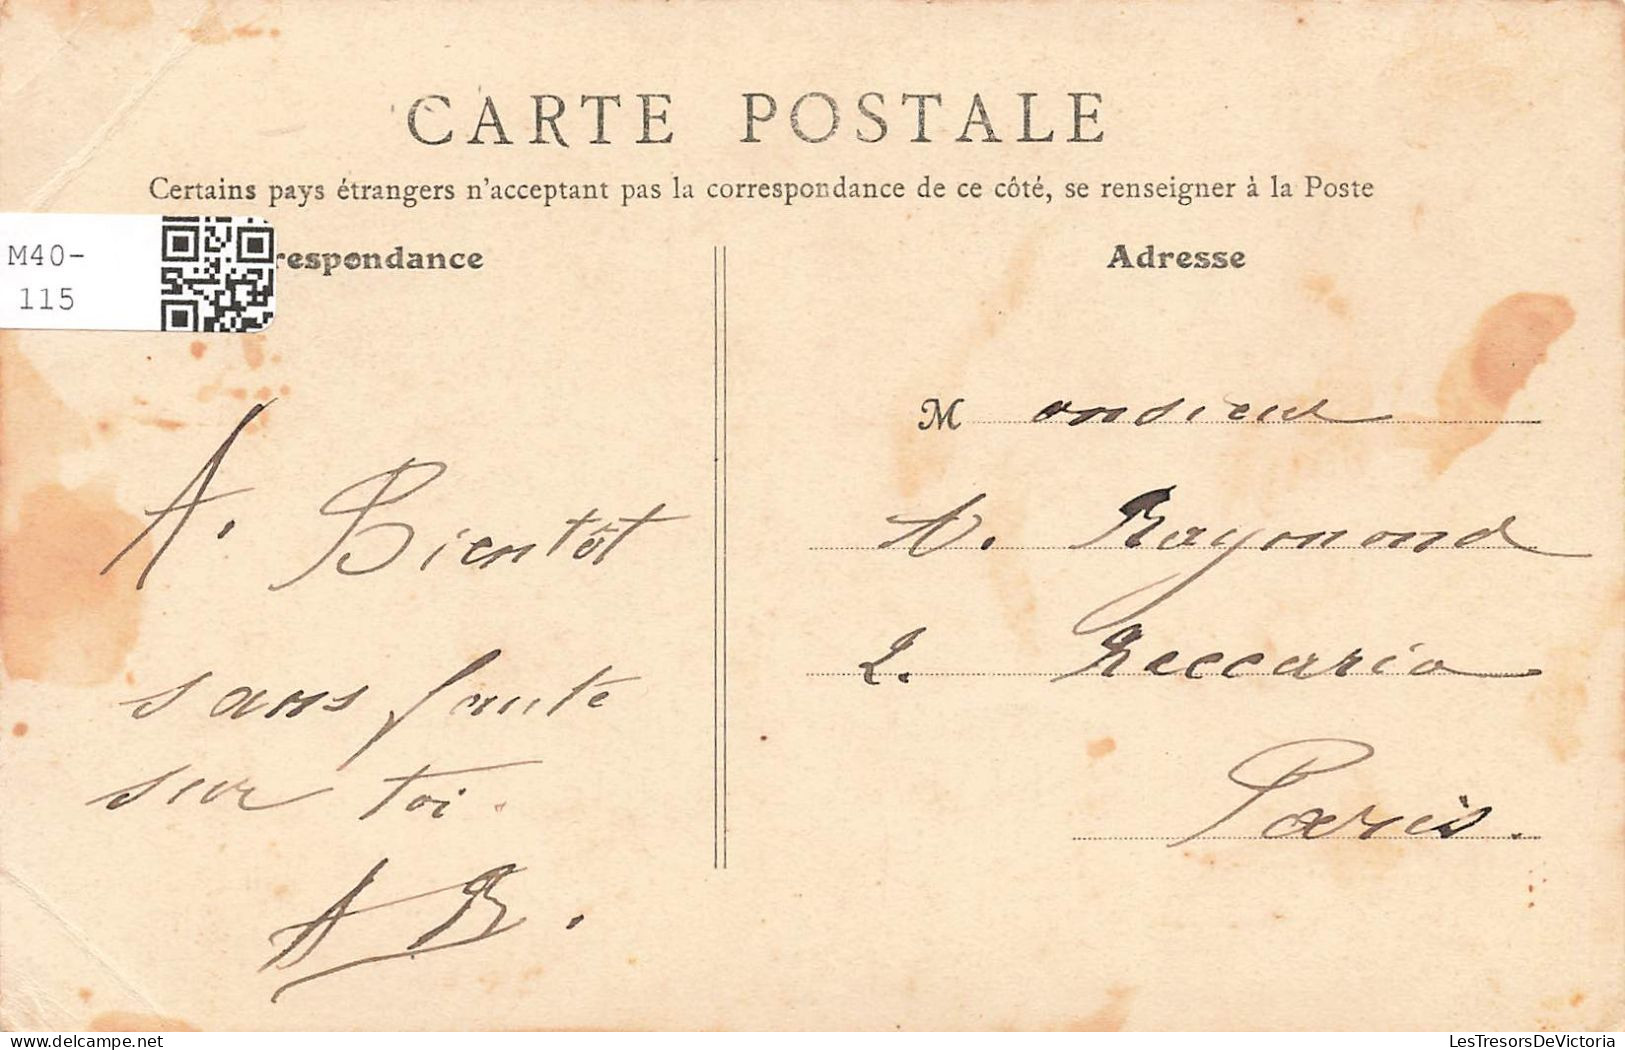 CARTE POSTALE
Certains pays étrangers n'acceptant pas la correspondance de ce côté, se renseigner à la Poste
M40-
115
respondance
A. Bientôt
sans faute
sur toi.
A B.
Adresse
Monsieur
Raymond
2. Beccaria
Paris.
LesTresorsDeVictoria